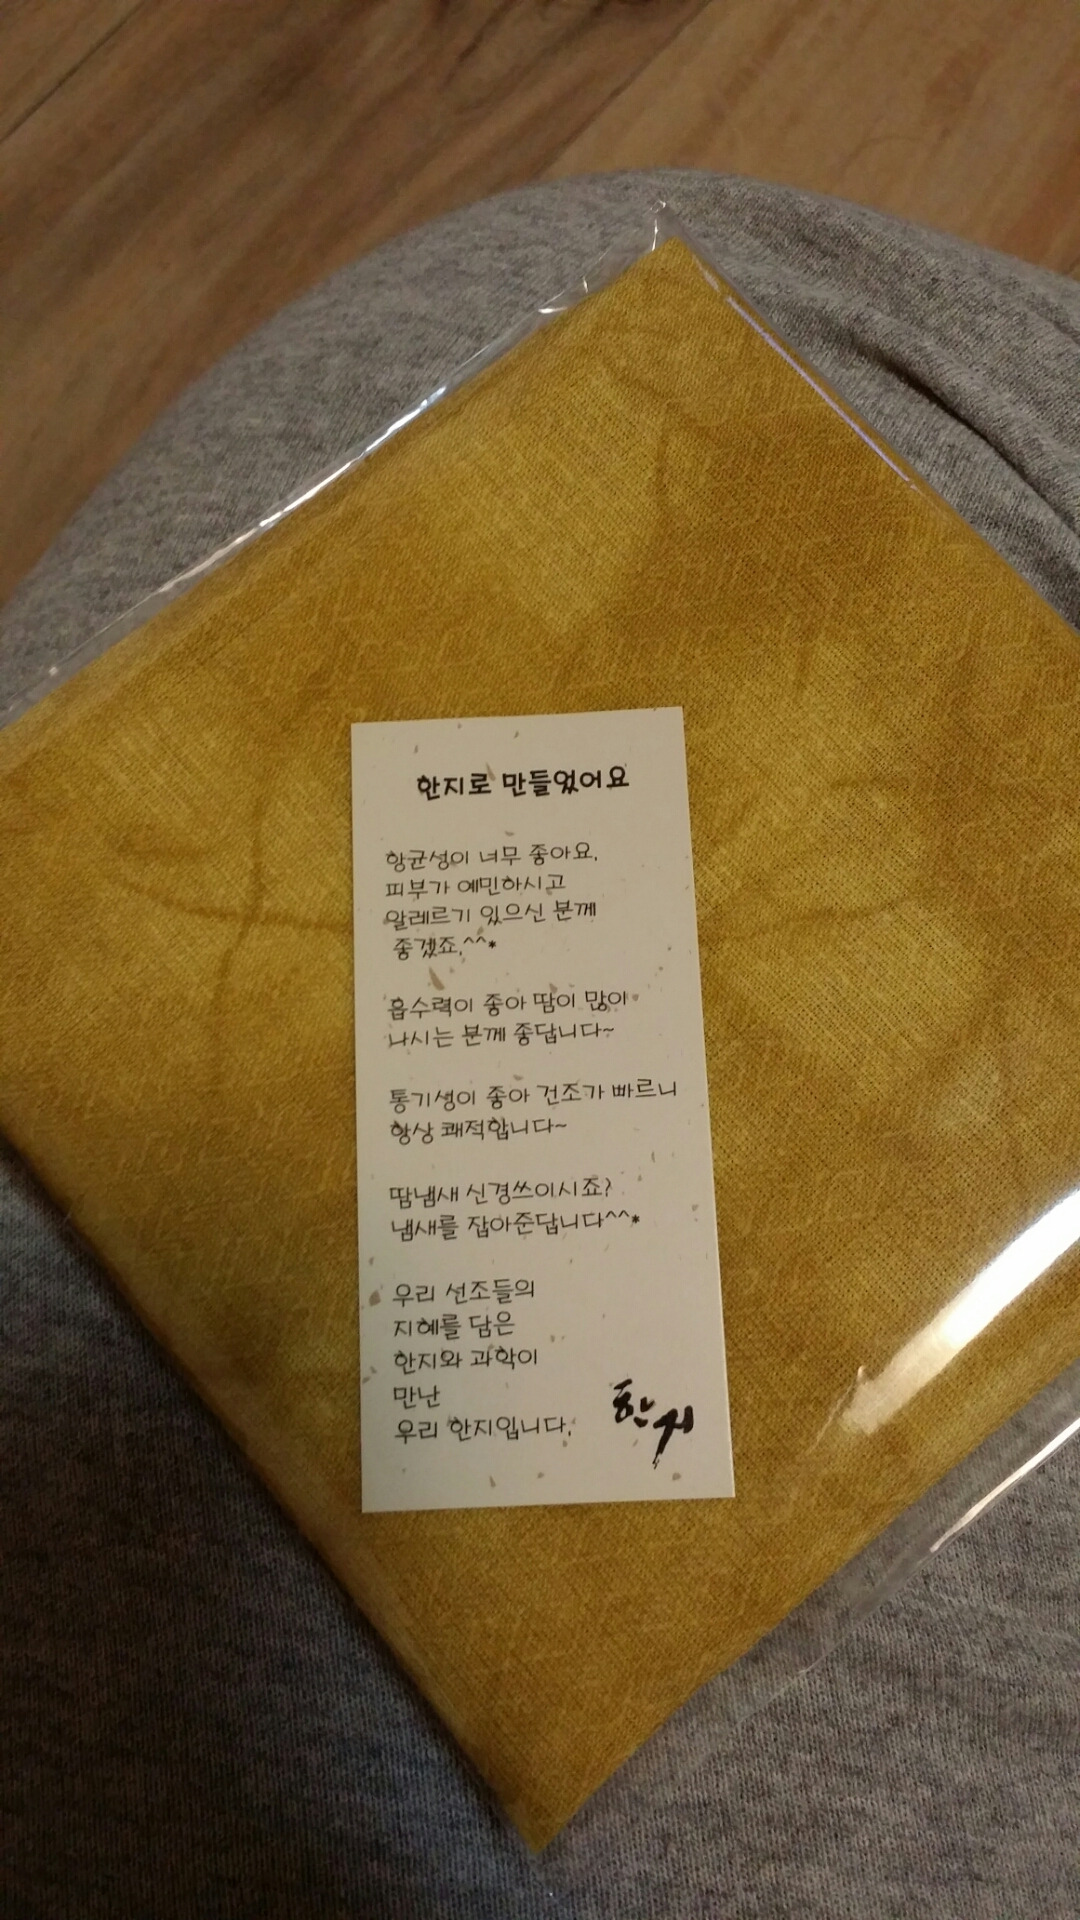 한지로 만들었어요
항균성이 너무 좋아요.
피부가 예민하시고
알레르기 있으신 분께
좋겠죠.^^*
흡수력이 좋아 땀이 많이
나시는 분께 좋답니다~
통기성이 좋아 건조가 빠르니
항상 쾌적합니다~
땀냄새 신경쓰이시죠?
냄새를 잡아준답니다^^*
우리 선조들의
지혜를 담은
한지와 과학이
만난
우리 한지입니다.
한지